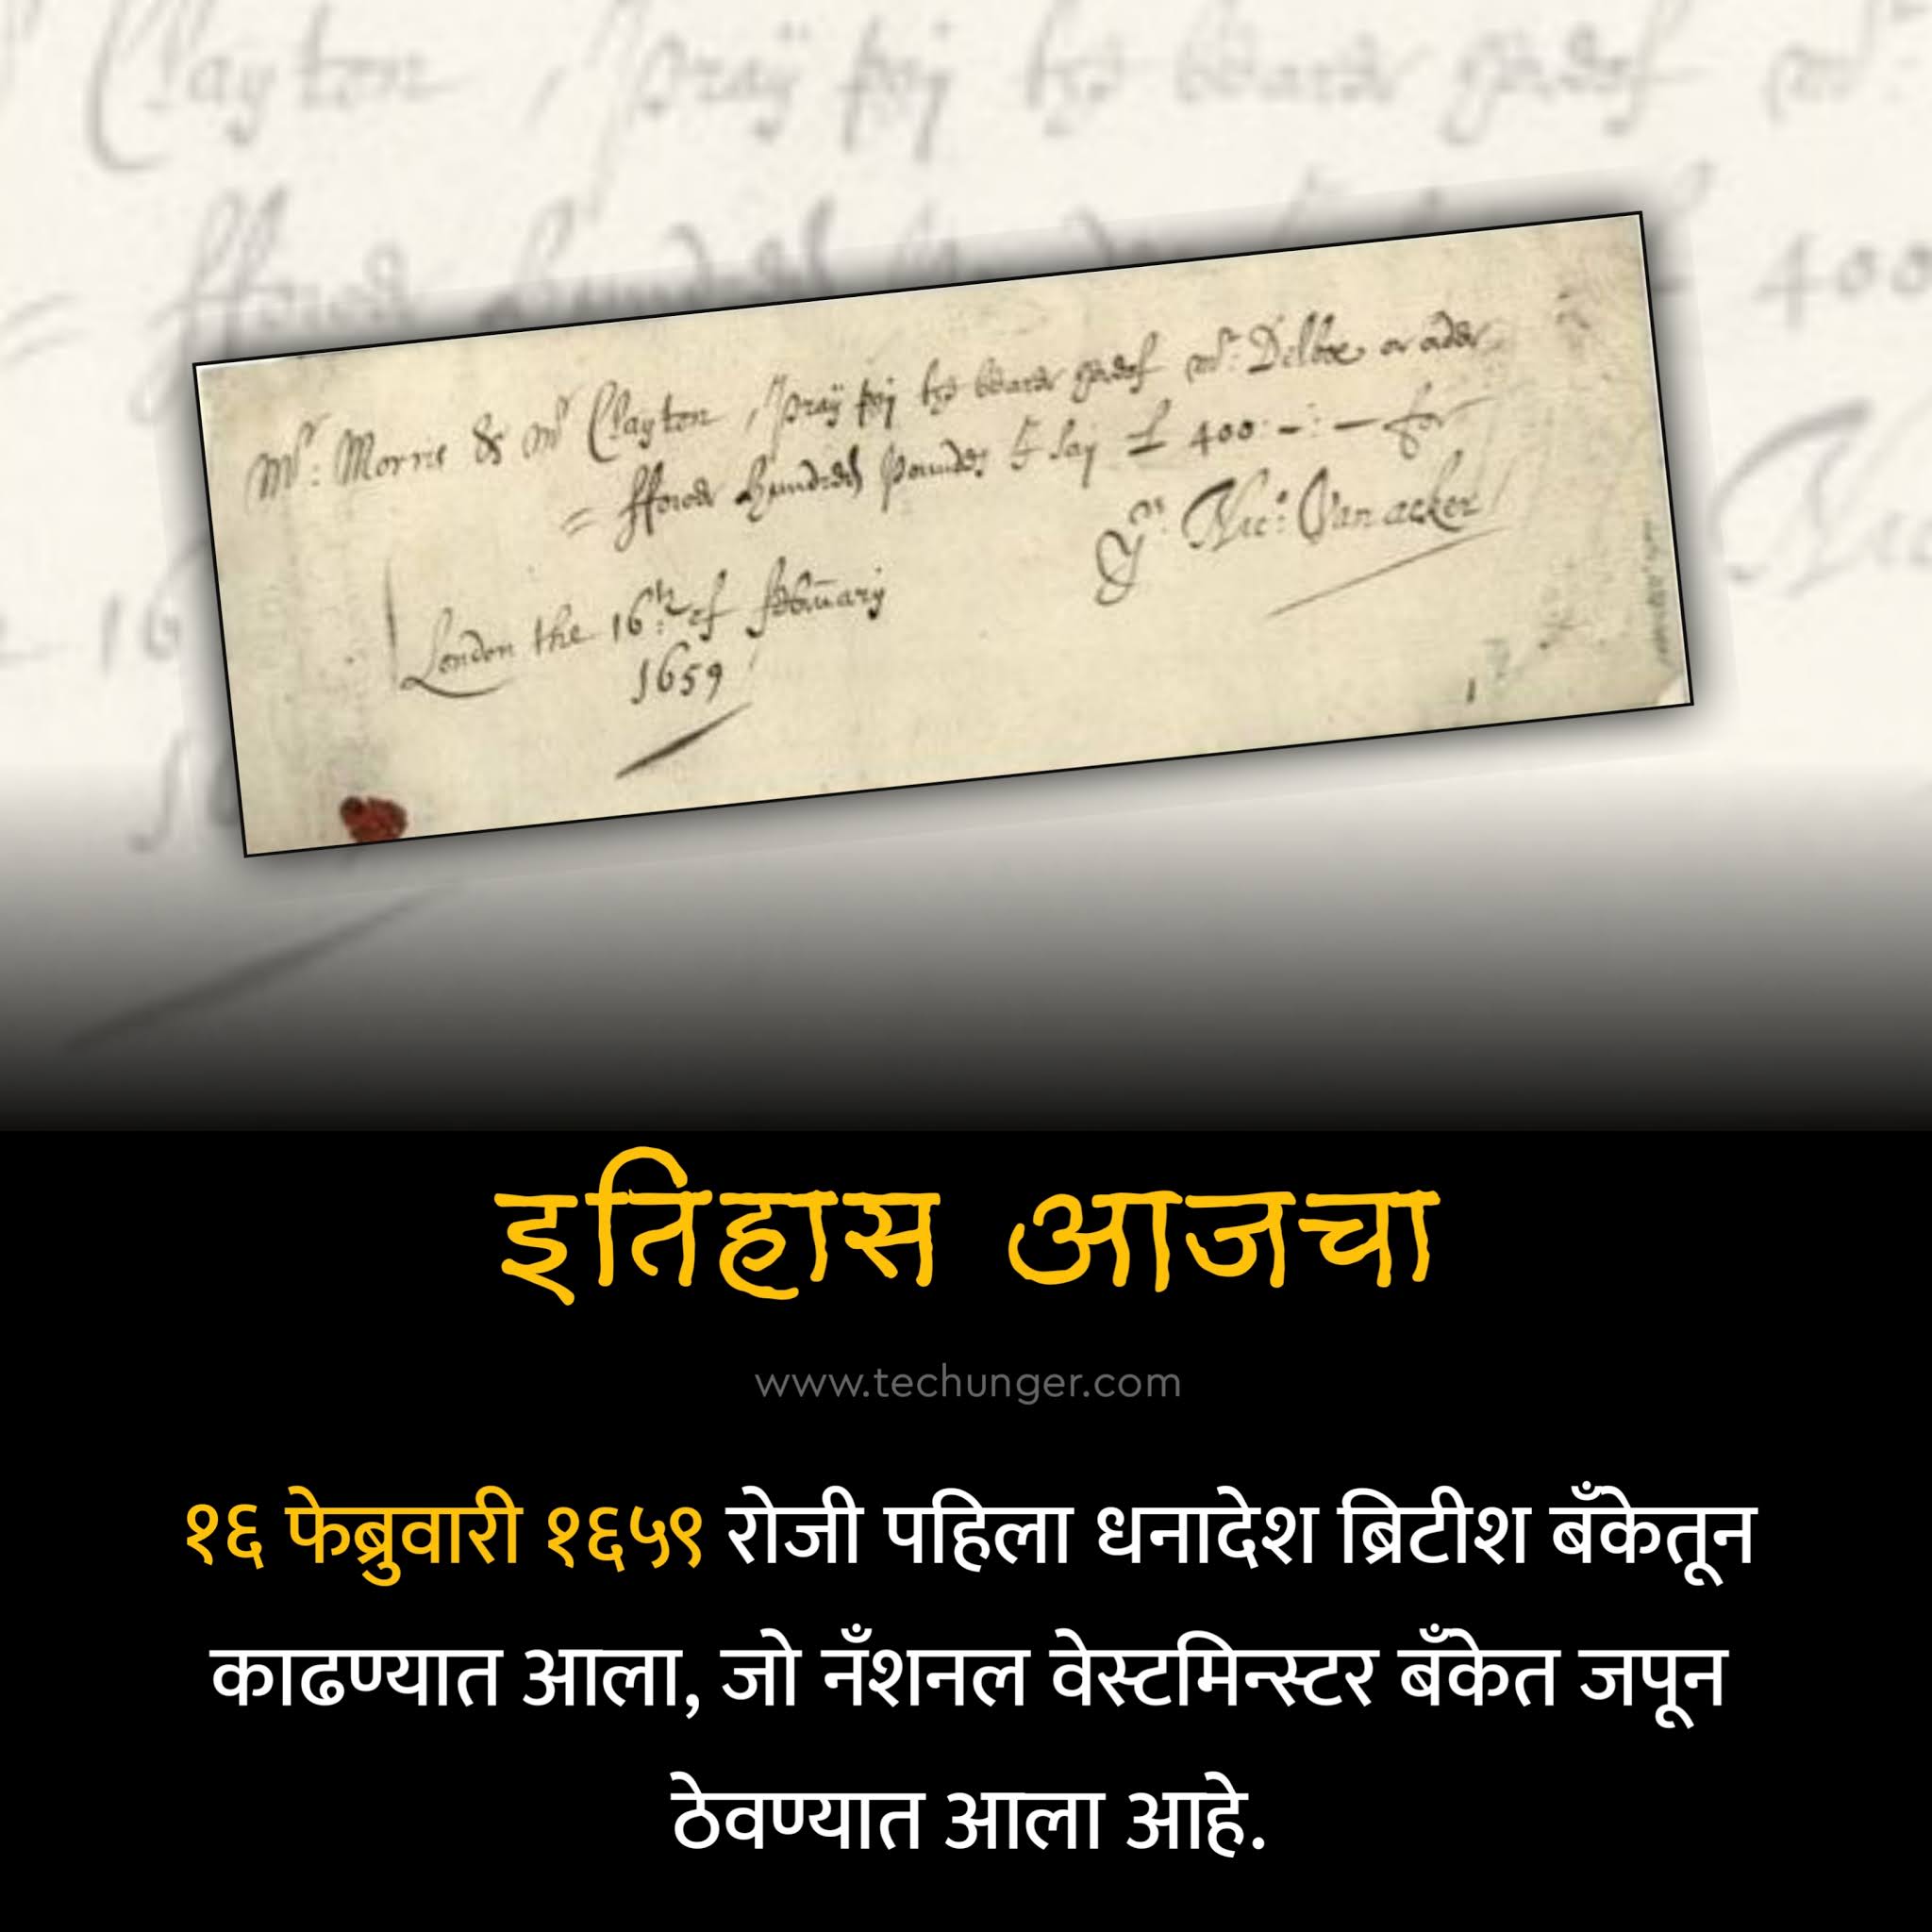 Mr: Morris & Mr Clayton, pray pay
or
= ffower hundred pounds say £ 400:-:- for
Yrs. Nic: Vanacker
London the 16th of
1659
इतिहास आजचा
www.techunger.com
१६ फेब्रुवारी १६५९ रोजी पहिला धनादेश ब्रिटीश बँकेतून
काढण्यात आला, जो नँशनल वेस्टमिन्स्टर बँकेत जपून
ठेवण्यात आला आहे.